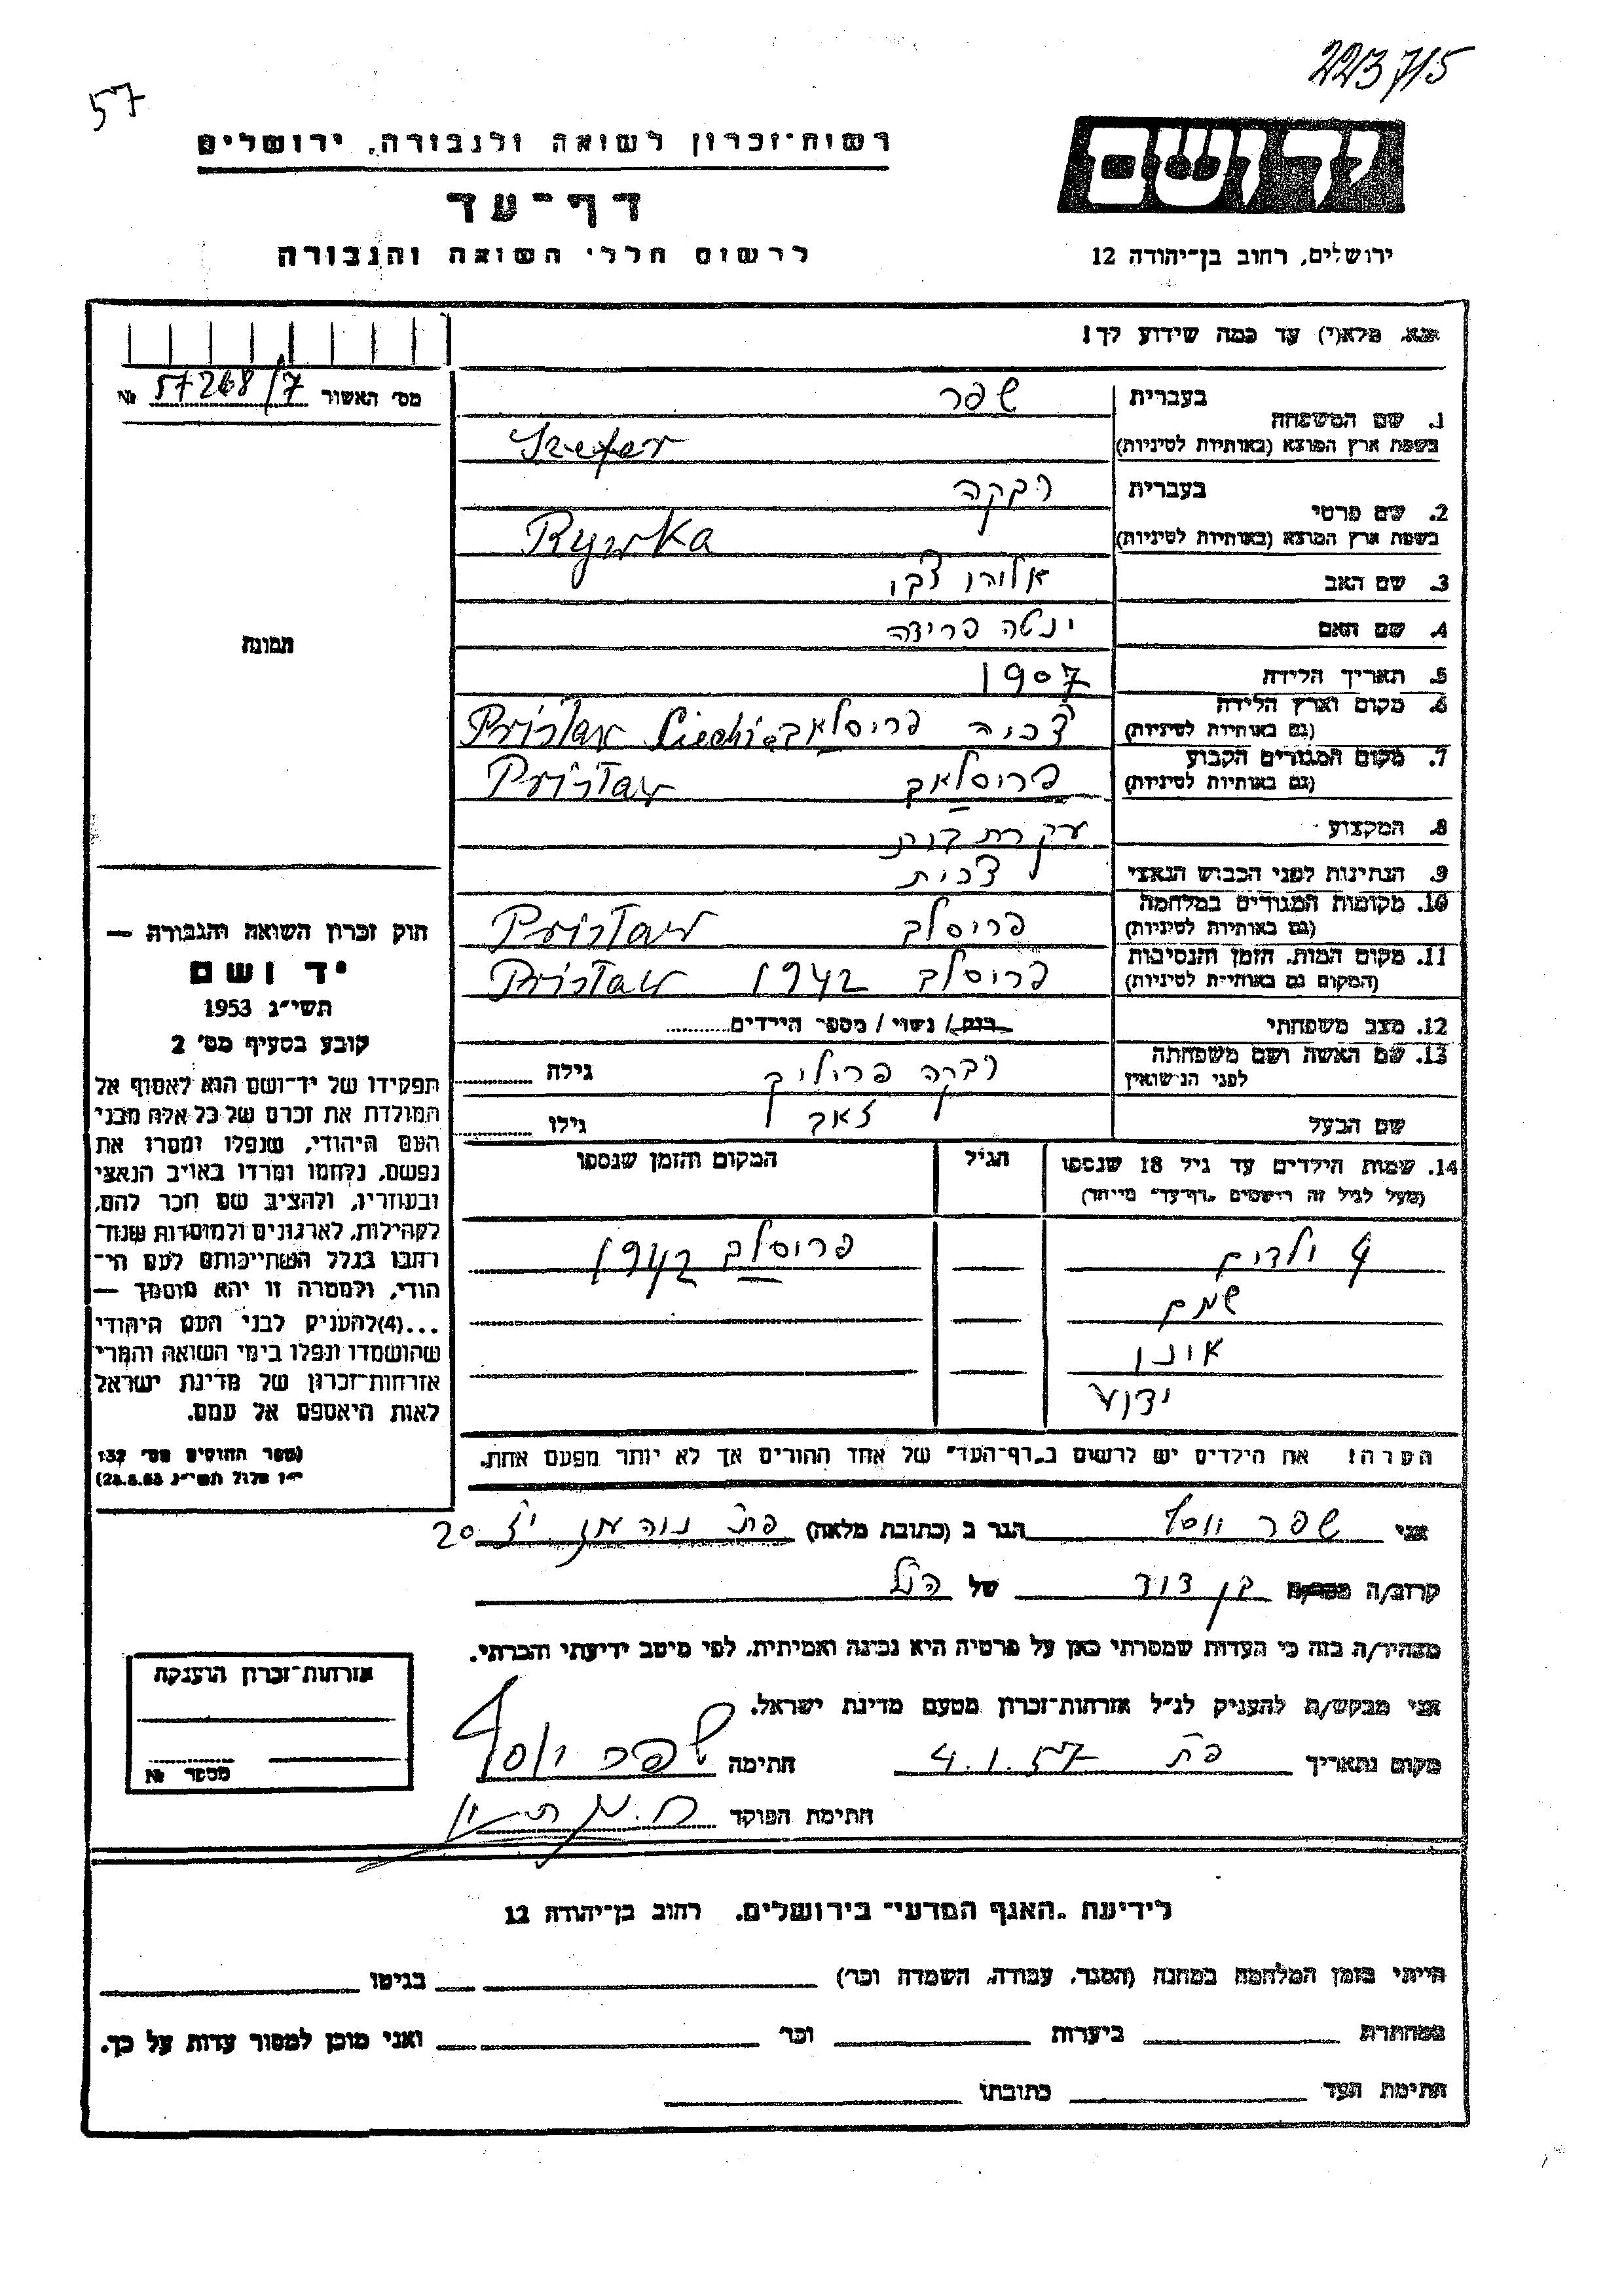 223715
57
יד ושם
רשות-זכרון לשואה ולגבורה, ירושלים
דף-עד
לרשום חללי השואה והגבורה
ירושלים, רחוב בן-יהודה 12
אנא, מלא(י) עד כמה שידוע לך!
מס' האשור 57268/7 №
1. שם המשפחה
בעברית שפר
בשפת ארץ המוצא (באותיות לטיניות) Szefer
2. שם פרטי
בעברית רבקה
בשפת ארץ המוצא (באותיות לטיניות) Rywka
3. שם האב
4. שם האם ינטה
5. תאריך הלידה 1907
6. מקום וארץ הלידה
(גם באותיות לטיניות)
7. מקום המגורים הקבוע
(גם באותיות לטיניות) פריסלאב
8. המקצוע עקרת בית
9. הנתינות לפני הכבוש הנאצי צ'כית
10. מקומות המגורים במלחמה
(גם באותיות לטיניות) פריסלב
11. מקום המות, הזמן והנסיבות
(המקום גם באותיות לטיניות) פריסלב 1942
12. מצב משפחתי רווק / נשוי / מספר הילדים
13. שם האשה ושם משפחתה
לפני הנישואין רבקה גילה
שם הבעל זאב גילו
14. שמות הילדים עד גיל 18 שנספו הגיל המקום והזמן שנספו
(מעל לגיל זה רושמים "דף-עד" מיוחד)
4 ילדים פריסלב 1942
שמם
אינו
ידוע
הערה! את הילדים יש לרשום ב"דף-העד" של אחד ההורים אך לא יותר מפעם אחת.
תמונה
חוק זכרון השואה והגבורה —
יד ושם
תשי"ג 1953
קובע בסעיף מס' 2
תפקידו של יד-ושם הוא לאסוף אל
המולדת את זכרם של כל אלה מבני
העם היהודי, שנפלו ומסרו את
נפשם, נלחמו ומרדו באויב הנאצי
ובעוזריו, ולהציב שם וזכר להם,
לקהילות, לארגונים ולמוסדות שנח-
רבו בגלל השתייכותם לעם הי-
הודי, ולמטרה זו יהא מוסמך —
...(4)להעניק לבני העם היהודי
שהושמדו ונפלו בימי השואה והמרי
אזרחות-זכרון של מדינת ישראל
לאות היאספם אל עמם.
(ספר החוקים מס' 132
י"ז אלול תשי"ג 28.8.53)
אני שפר יוסף הגר ב (כתובת מלאה) פת נוה עוז 20
קרוב/ה בן דוד של הנ"ל
מצהיר/ה בזה כי העדות שמסרתי כאן על פרטיה היא נכונה ואמיתית, לפי מיטב ידיעתי והכרתי.
אני מבקש/ת להעניק לנ"ל אזרחות-זכרון מטעם מדינת ישראל.
מקום ותאריך פת 4.1.57 חתימה שפר יוסף
חתימת הפוקד
אזרחות-זכרון הוענקה
מספר №
לידיעת "האגף המדעי" בירושלים, רחוב בן-יהודה 12
הייתי בזמן המלחמה במחנה (הסגר, עבודה, השמדה וכו') בגיטו
במחתרת ביערות וכו' ואני מוכן למסור עדות על כך.
חתימת העד כתובתו